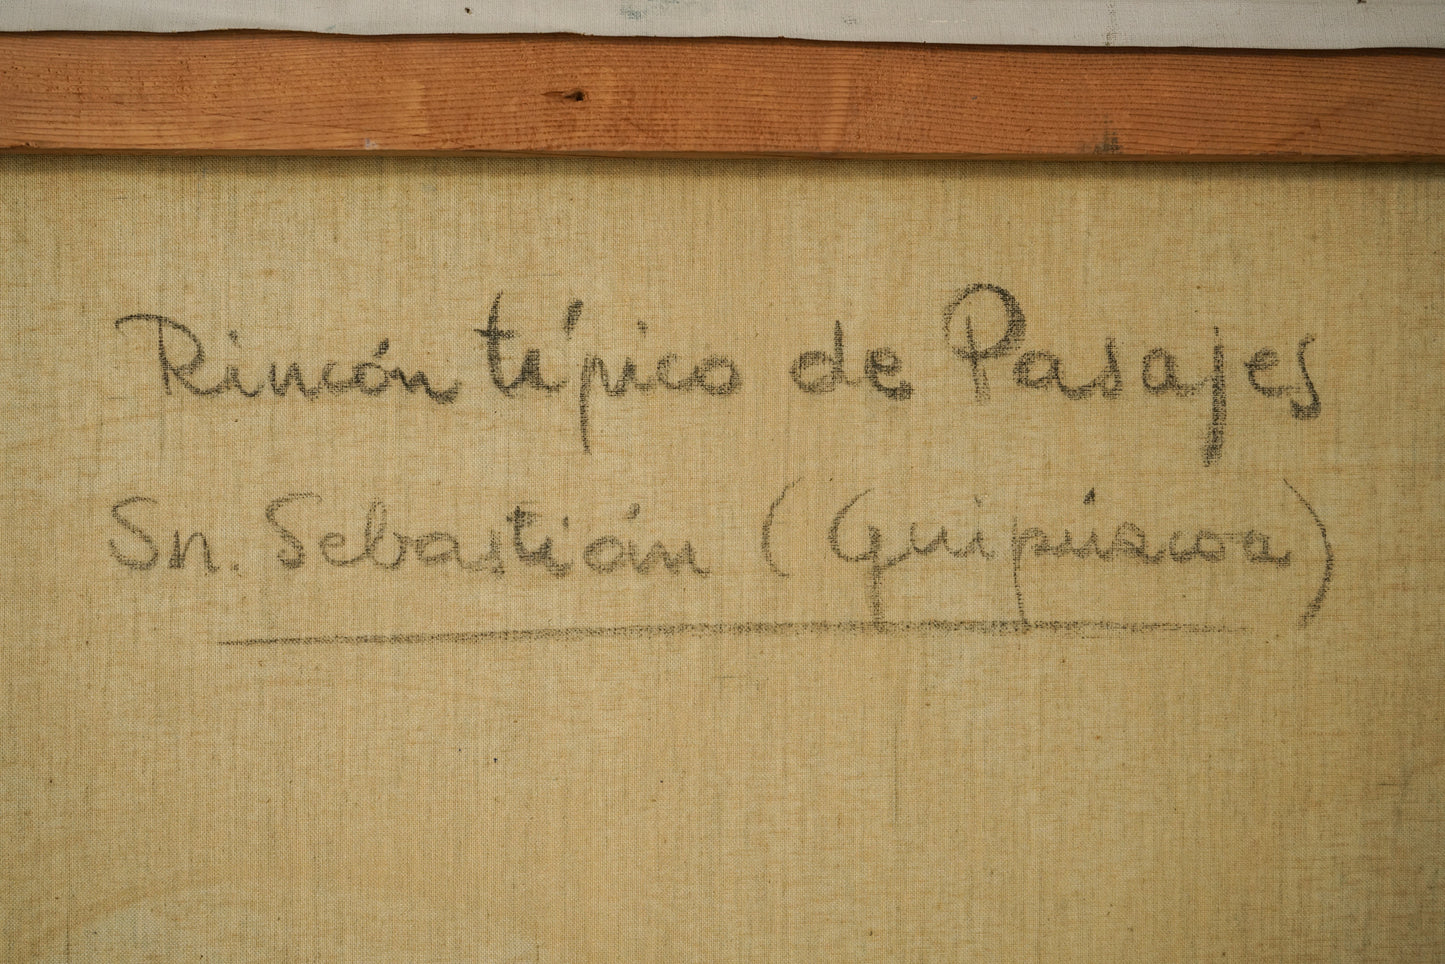 Rincón típico de Pasajes
Sn. Sebastián (Guipúzcoa)